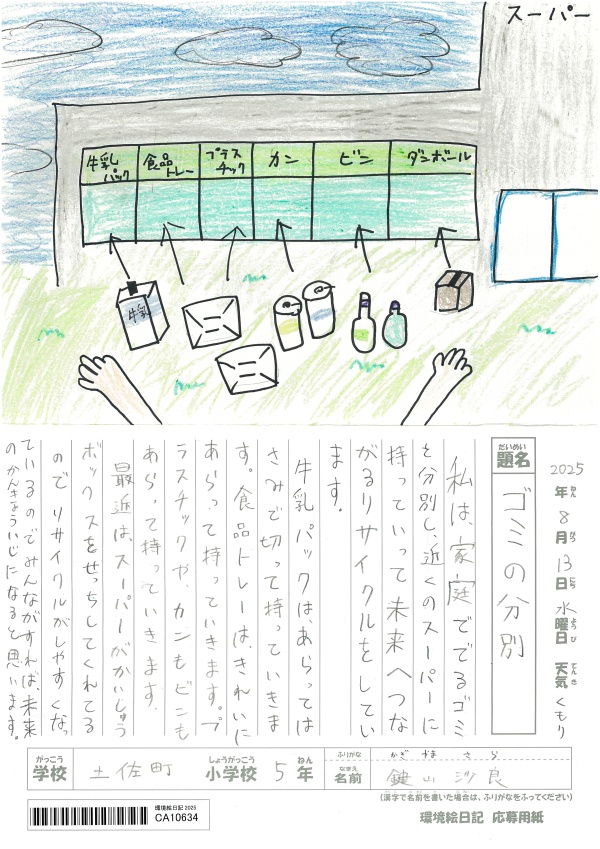 スーパー
牛乳パック
食品トレー
プラスチック
カン
ビン
ダンボール
牛乳
2025年8月13日水曜日 天気くもり
ねん
がつ
にち
ようび
てんき
だいめい
題名
ゴミの分別
私は、家庭ででるゴミ
を分別し、近くのスーパーに
持っていって未来へつな
がるリサイクルをしてい
ます。
牛乳パックは、あらっては
さみで切って持っていきま
す。食品トレーは、きれいに
あらって持っていきます。プ
ラスチックや、カンもビンも
あらって持っていきます。
最近は、スーパーがかいしゅう
ボックスをせっちしてくれてる
ので リサイクルがしやすくなっ
ているのでみんながすれば、未来
のかんきょういじになると思います。
がっこう
学校
土佐町
しょうがっこう
小学校
5
ねん
年
ふりがな
かぎ やま さら
なまえ
名前
鍵山 沙良
(漢字で名前を書いた場合は、ふりがなをふってください)
環境絵日記 2025
CA10634
環境絵日記 応募用紙